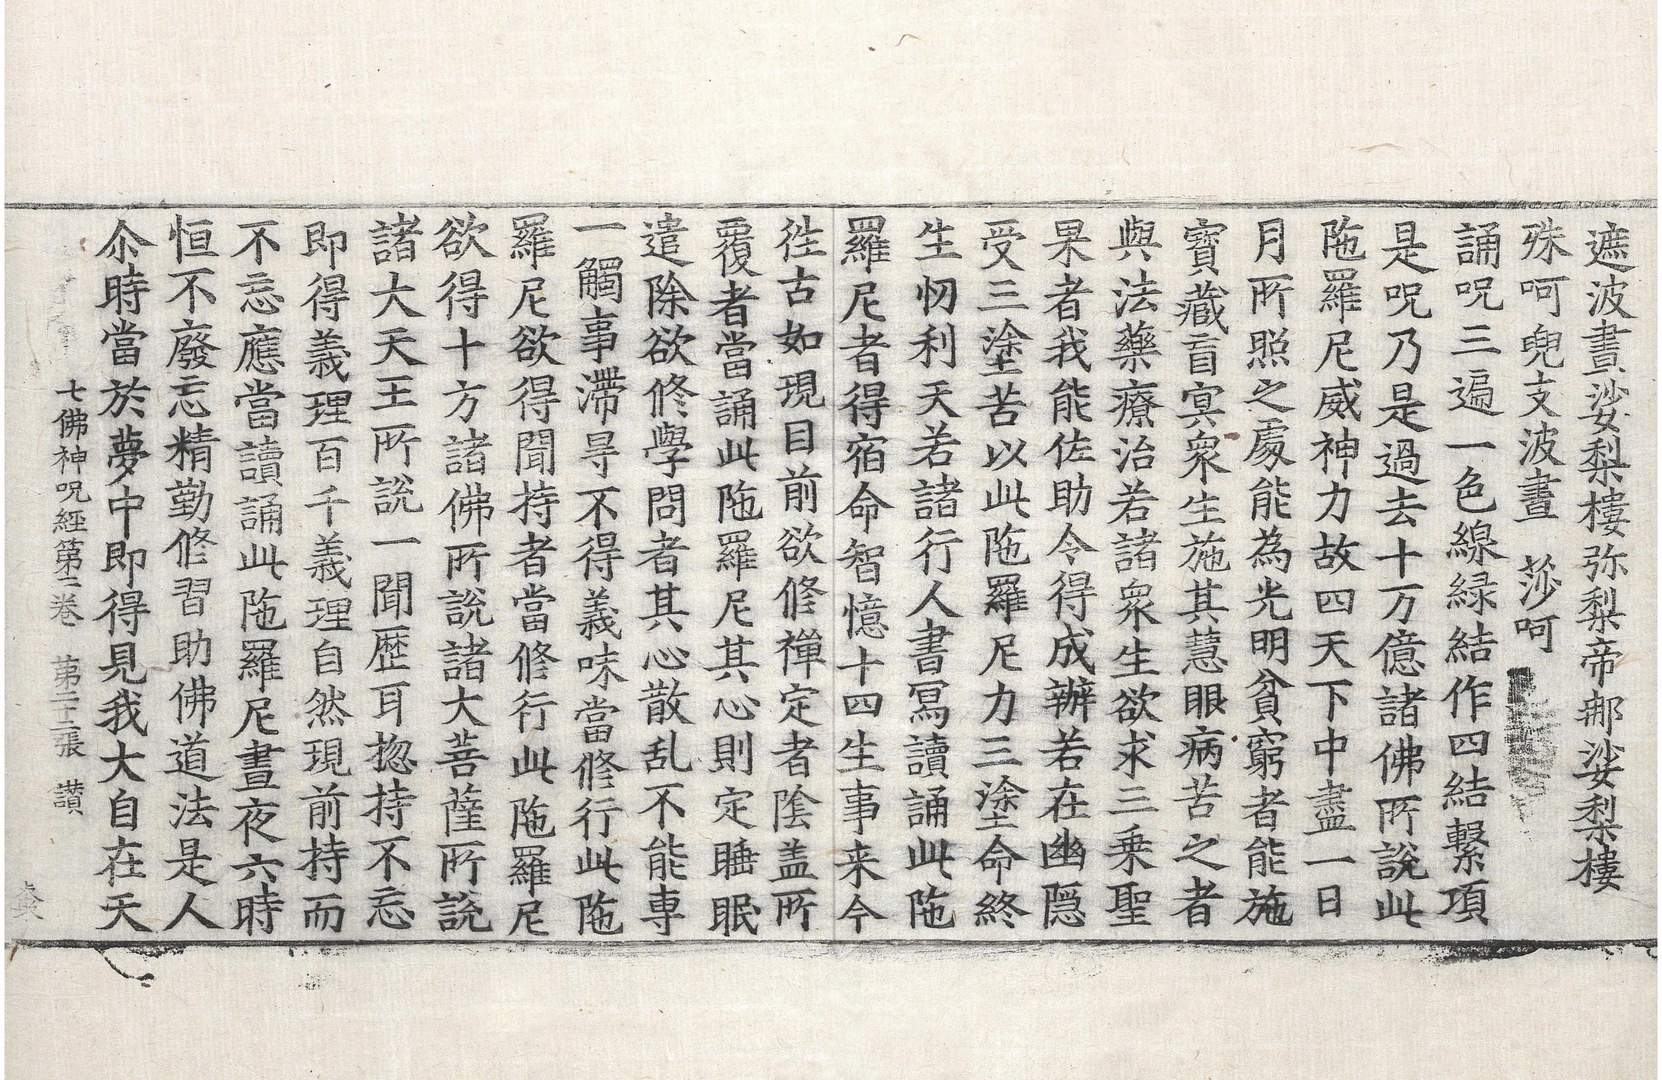 遮波晝娑梨樓弥梨帝那娑梨樓
殊呵兜支波晝 莎呵
誦呪三遍一色線緑結作四結繋項
是呪乃是過去十万億諸佛所說此
陁羅尼威神力故四天下中盡一日
月所照之處能為光明貧窮者能施
寶藏盲冥衆生施其慧眼病苦之者
與法藥療治若諸衆生欲求三乗聖
果者我能佐助令得成辦若在幽隠
受三塗苦以此陁羅尼力三塗命終
生忉利天若諸行人書寫讀誦此陁
羅尼者得宿命智憶十四生事来今
徃古如現目前欲修禪定者陰盖所
覆者當誦此陁羅尼其心則定睡眠
遣除欲修學問者其心散乱不能專
一觸事滯㝵不得義味當修行此陁
羅尼欲得聞持者當修行此陁羅尼
欲得十方諸佛所說諸大菩薩所說
諸大天王所說一聞歷耳揔持不忘
即得義理百千義理自然現前持而
不忘應當讀誦此陁羅尼晝夜六時
恒不廢忘精勤修習助佛道法是人
尒時當於夢中即得見我大自在天
七佛神呪經第二卷 第二十二張 讃